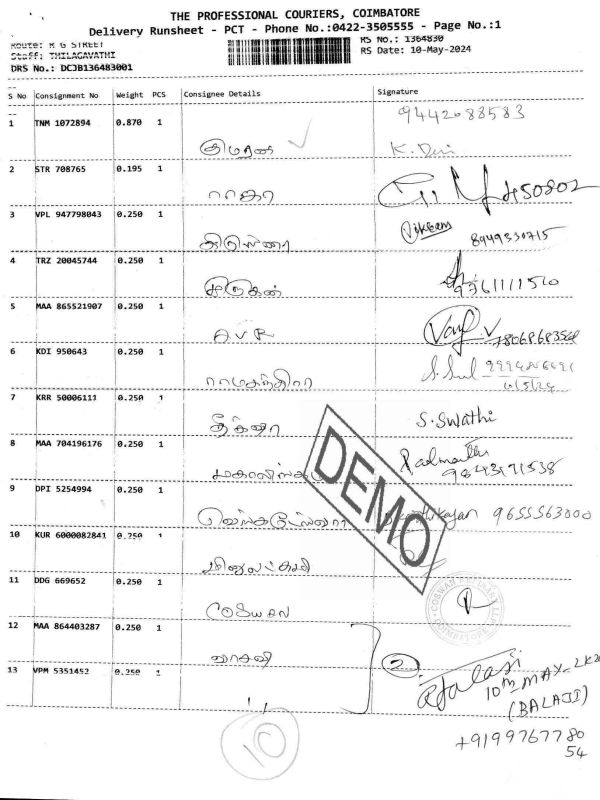 THE PROFESSIONAL COURIERS, COIMBATORE
Delivery Runsheet - PCT - Phone No.:0422-3505555 - Page No.:1
Route: R G STREET
RS No.: 1364830
Staff: THILAGAVATHI
RS Date: 10-May-2024
DRS No.: DCJB136483001
S No Consignment No Weight PCS Consignee Details Signature
1 TNM 1072894 0.870 1 9442088583
குமரன் K. Devi
2 STR 708765 0.195 1
ராகா 450802
3 VPL 947798043 0.250 1 Vikram 8949330715
4 TRZ 20045744 0.250 1
முருகன் 9361111510
5 MAA 865521907 0.250 1
A.V.R
6 KDI 950643 0.250 1
7 KRR 50006111 0.250 1
S. Swathi
8 MAA 704196176 0.250 1
9843171538
9 DPI 5254994 0.250 1
9655563000
10 KUR 6000082841 0.250 1
11 DDG 669652 0.250 1
12 MAA 864403287 0.250 1
வாசவி 2
13 VPM 5351452 0.250 1 Balaji
10th MAY-2K24
(BALAJI)
10
+9199767780
54
DEMO